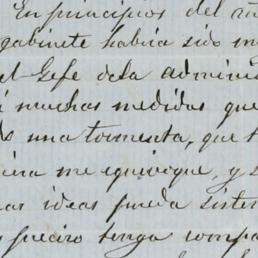 En principios del
gabinete habria sido
el Gefe de la adminis
muchas medidas que
una tormenta, que
me equivoque, y
ideas pueda sister
preciso tenga compa